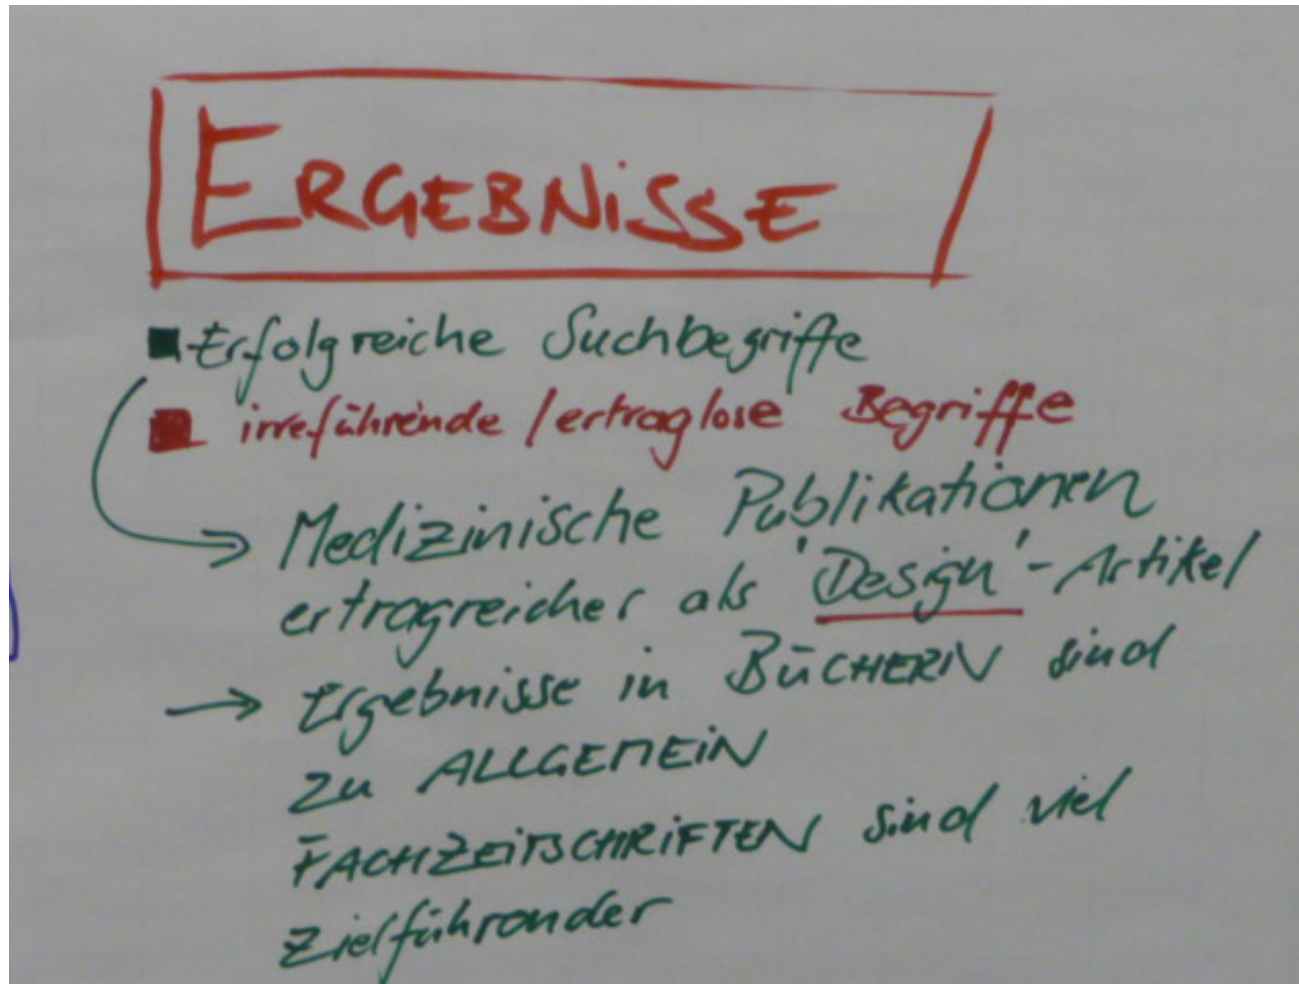 ERGEBNiSSE
Erfolgreiche Suchbegriffe
irreführende / ertraglose Begriffe
→ Medizinische Publikationen
ertragreicher als 'Design'-Artikel
→ Ergebnisse in BÜCHERN sind
zu ALLGEMEiN
FACHZEiTSCHRiFTEN sind viel
zielführender